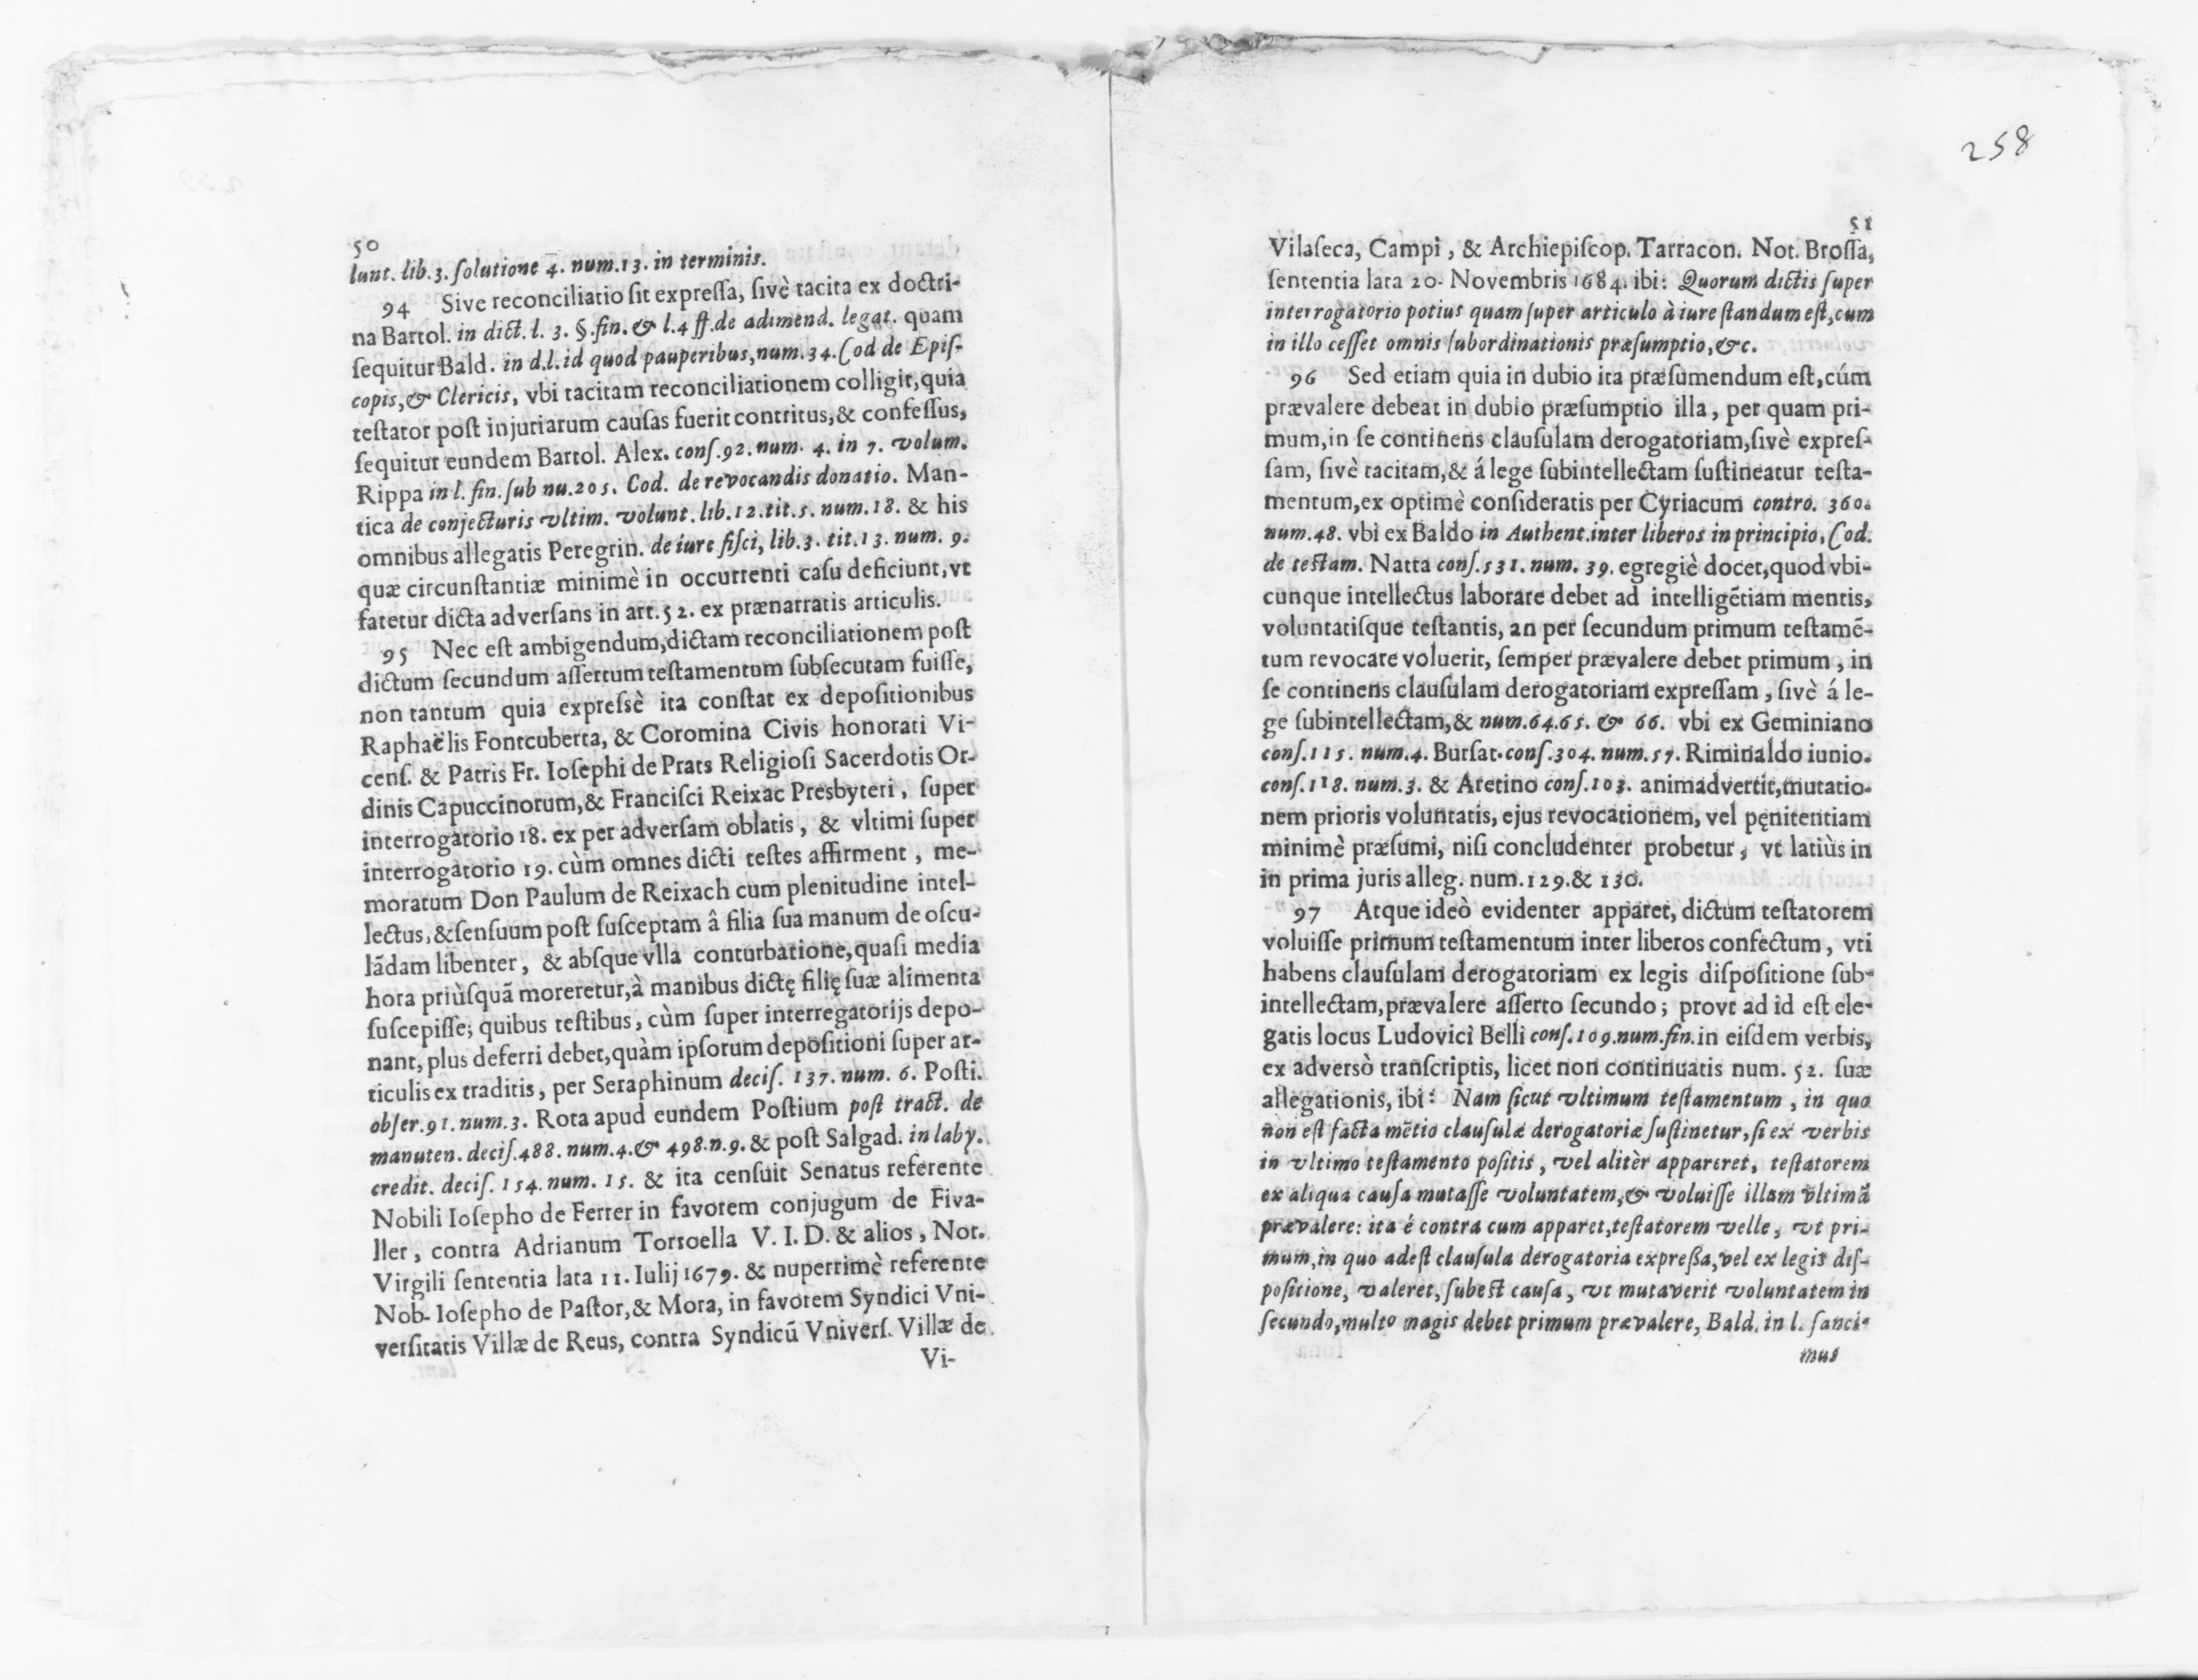 258
50
lunt. lib.3. ſolutione 4. num.13. in terminis.
94 Sive reconciliatio ſit expreſſa, ſivè tacita ex doctri-
na Bartol. in dict. l. 3. §. fin. & l.4 ff. de adimend. legat. quam
ſequitur Bald. in d.l. id quod pauperibus, num.34. Cod de Epiſ-
copis, & Clericis, vbi tacitam reconciliationem colligit, quia
teſtator poſt injuriarum cauſas fuerit contritus, & confeſſus,
ſequitur eundem Bartol. Alex. conſ.92. num. 4. in 7. volum.
Rippa in l. fin. ſub nu.205. Cod. de revocandis donatio. Man-
tica de conjecturis vltim. volunt. lib.12. tit.5. num.18. & his
omnibus allegatis Peregrin. de iure fiſci, lib.3. tit.13. num. 9.
quæ circunſtantiæ minimè in occurrenti caſu deficiunt, vt
fatetur dicta adverſans in art.52. ex prænarratis articulis.
95 Nec eſt ambigendum, dictam reconciliationem poſt
dictum ſecundum aſſertum teſtamentum ſubſecutam fuiſſe,
non tantum quia expreſsè ita conſtat ex depoſitionibus
Raphaëlis Fontcuberta, & Coromina Civis honorati Vi-
cenſ. & Patris Fr. Ioſephi de Prats Religioſi Sacerdotis Or-
dinis Capuccinorum, & Franciſci Reixac Presbyteri, ſuper
interrogatorio 18. ex per adverſam oblatis, & vltimi ſuper
interrogatorio 19. cùm omnes dicti teſtes affirment, me-
moratum Don Paulum de Reixach cum plenitudine intel-
lectus, & ſenſuum poſt ſuſceptam â filia ſua manum de oſcu-
lãdam libenter, & abſque vlla conturbatione, quaſi media
hora priùſquã moreretur, à manibus dictę filię ſuæ alimenta
ſuſcepiſſe; quibus teſtibus, cùm ſuper interregatorijs depo-
nant, plus deferri debet, quàm ipſorum depoſitioni ſuper ar-
ticulis ex traditis, per Seraphinum deciſ. 137. num. 6. Poſti.
obſer.91. num.3. Rota apud eundem Poſtium poſt tract. de
manuten. deciſ.488. num.4. & 498. n.9. & poſt Salgad. in laby.
credit. deciſ. 154. num. 15. & ita cenſuit Senatus referente
Nobili Ioſepho de Ferrer in favorem conjugum de Fiva-
ller, contra Adrianum Torroella V. I. D. & alios, Not.
Virgili ſententia lata 11. Iulij 1679. & nuperrimè referente
Nob. Ioſepho de Paſtor, & Mora, in favorem Syndici Vni-
verſitatis Villæ de Reus, contra Syndicũ Vniverſ. Villæ de
Vi-
51
Vilaſeca, Campi, & Archiepiſcop. Tarracon. Not. Broſſa,
ſententia lata 20. Novembris 1684. ibi: Quorum dictis ſuper
interrogatorio potius quam ſuper articulo à iure ſtandum eſt, cum
in illo ceſſet omnis ſubordinationis præſumptio, &c.
96 Sed etiam quia in dubio ita præſumendum eſt, cúm
prævalere debeat in dubio præſumptio illa, per quam pri-
mum, in ſe continens clauſulam derogatoriam, ſivè expreſ-
ſam, ſivè tacitam, & á lege ſubintellectam ſuſtineatur teſta-
mentum, ex optimè conſideratis per Cyriacum contro. 360.
num.48. vbi ex Baldo in Authent. inter liberos in principio, Cod.
de teſtam. Natta conſ.531. num. 39. egregiè docet, quod vbi-
cunque intellectus laborare debet ad intelligẽtiam mentis,
voluntatiſque teſtantis, an per ſecundum primum teſtamẽ-
tum revocare voluerit, ſemper prævalere debet primum, in
ſe continens clauſulam derogatoriam expreſſam, ſivè á le-
ge ſubintellectam, & num.64.65. & 66. vbi ex Geminiano
conſ.115. num.4. Burſat. conſ.304. num.57. Riminaldo iunio.
conſ.118. num.3. & Aretino conſ.103. animadvertit, mutatio-
nem prioris voluntatis, ejus revocationem, vel pęnitentiam
minimè præſumi, niſi concludenter probetur, vt latiùs in
in prima juris alleg. num.129. & 130.
97 Atque ideò evidenter apparet, dictum teſtatorem
voluiſſe primum teſtamentum inter liberos confectum, vti
habens clauſulam derogatoriam ex legis diſpoſitione ſub-
intellectam, prævalere aſſerto ſecundo; provt ad id eſt ele-
gatis locus Ludovici Belli conſ.109. num. fin. in eiſdem verbis,
ex adversò tranſcriptis, licet non continuatis num. 52. ſuæ
allegationis, ibi: Nam ſicut vltimum teſtamentum, in quo
non eſt facta mẽtio clauſulæ derogatoriæ ſuſtinetur, ſi ex verbis
in vltimo teſtamento poſitis, vel alitèr appareret, teſtatorem
ex aliqua cauſa mutaſſe voluntatem, & voluiſſe illam vltimã
prævalere: ita é contra cum apparet, teſtatorem velle, vt pri-
mum, in quo adeſt clauſula derogatoria expreßa, vel ex legis diſ-
poſitione, valeret, ſubeſt cauſa, vt mutaverit voluntatem in
ſecundo, multo magis debet primum prævalere, Bald. in l. ſanci-
mus